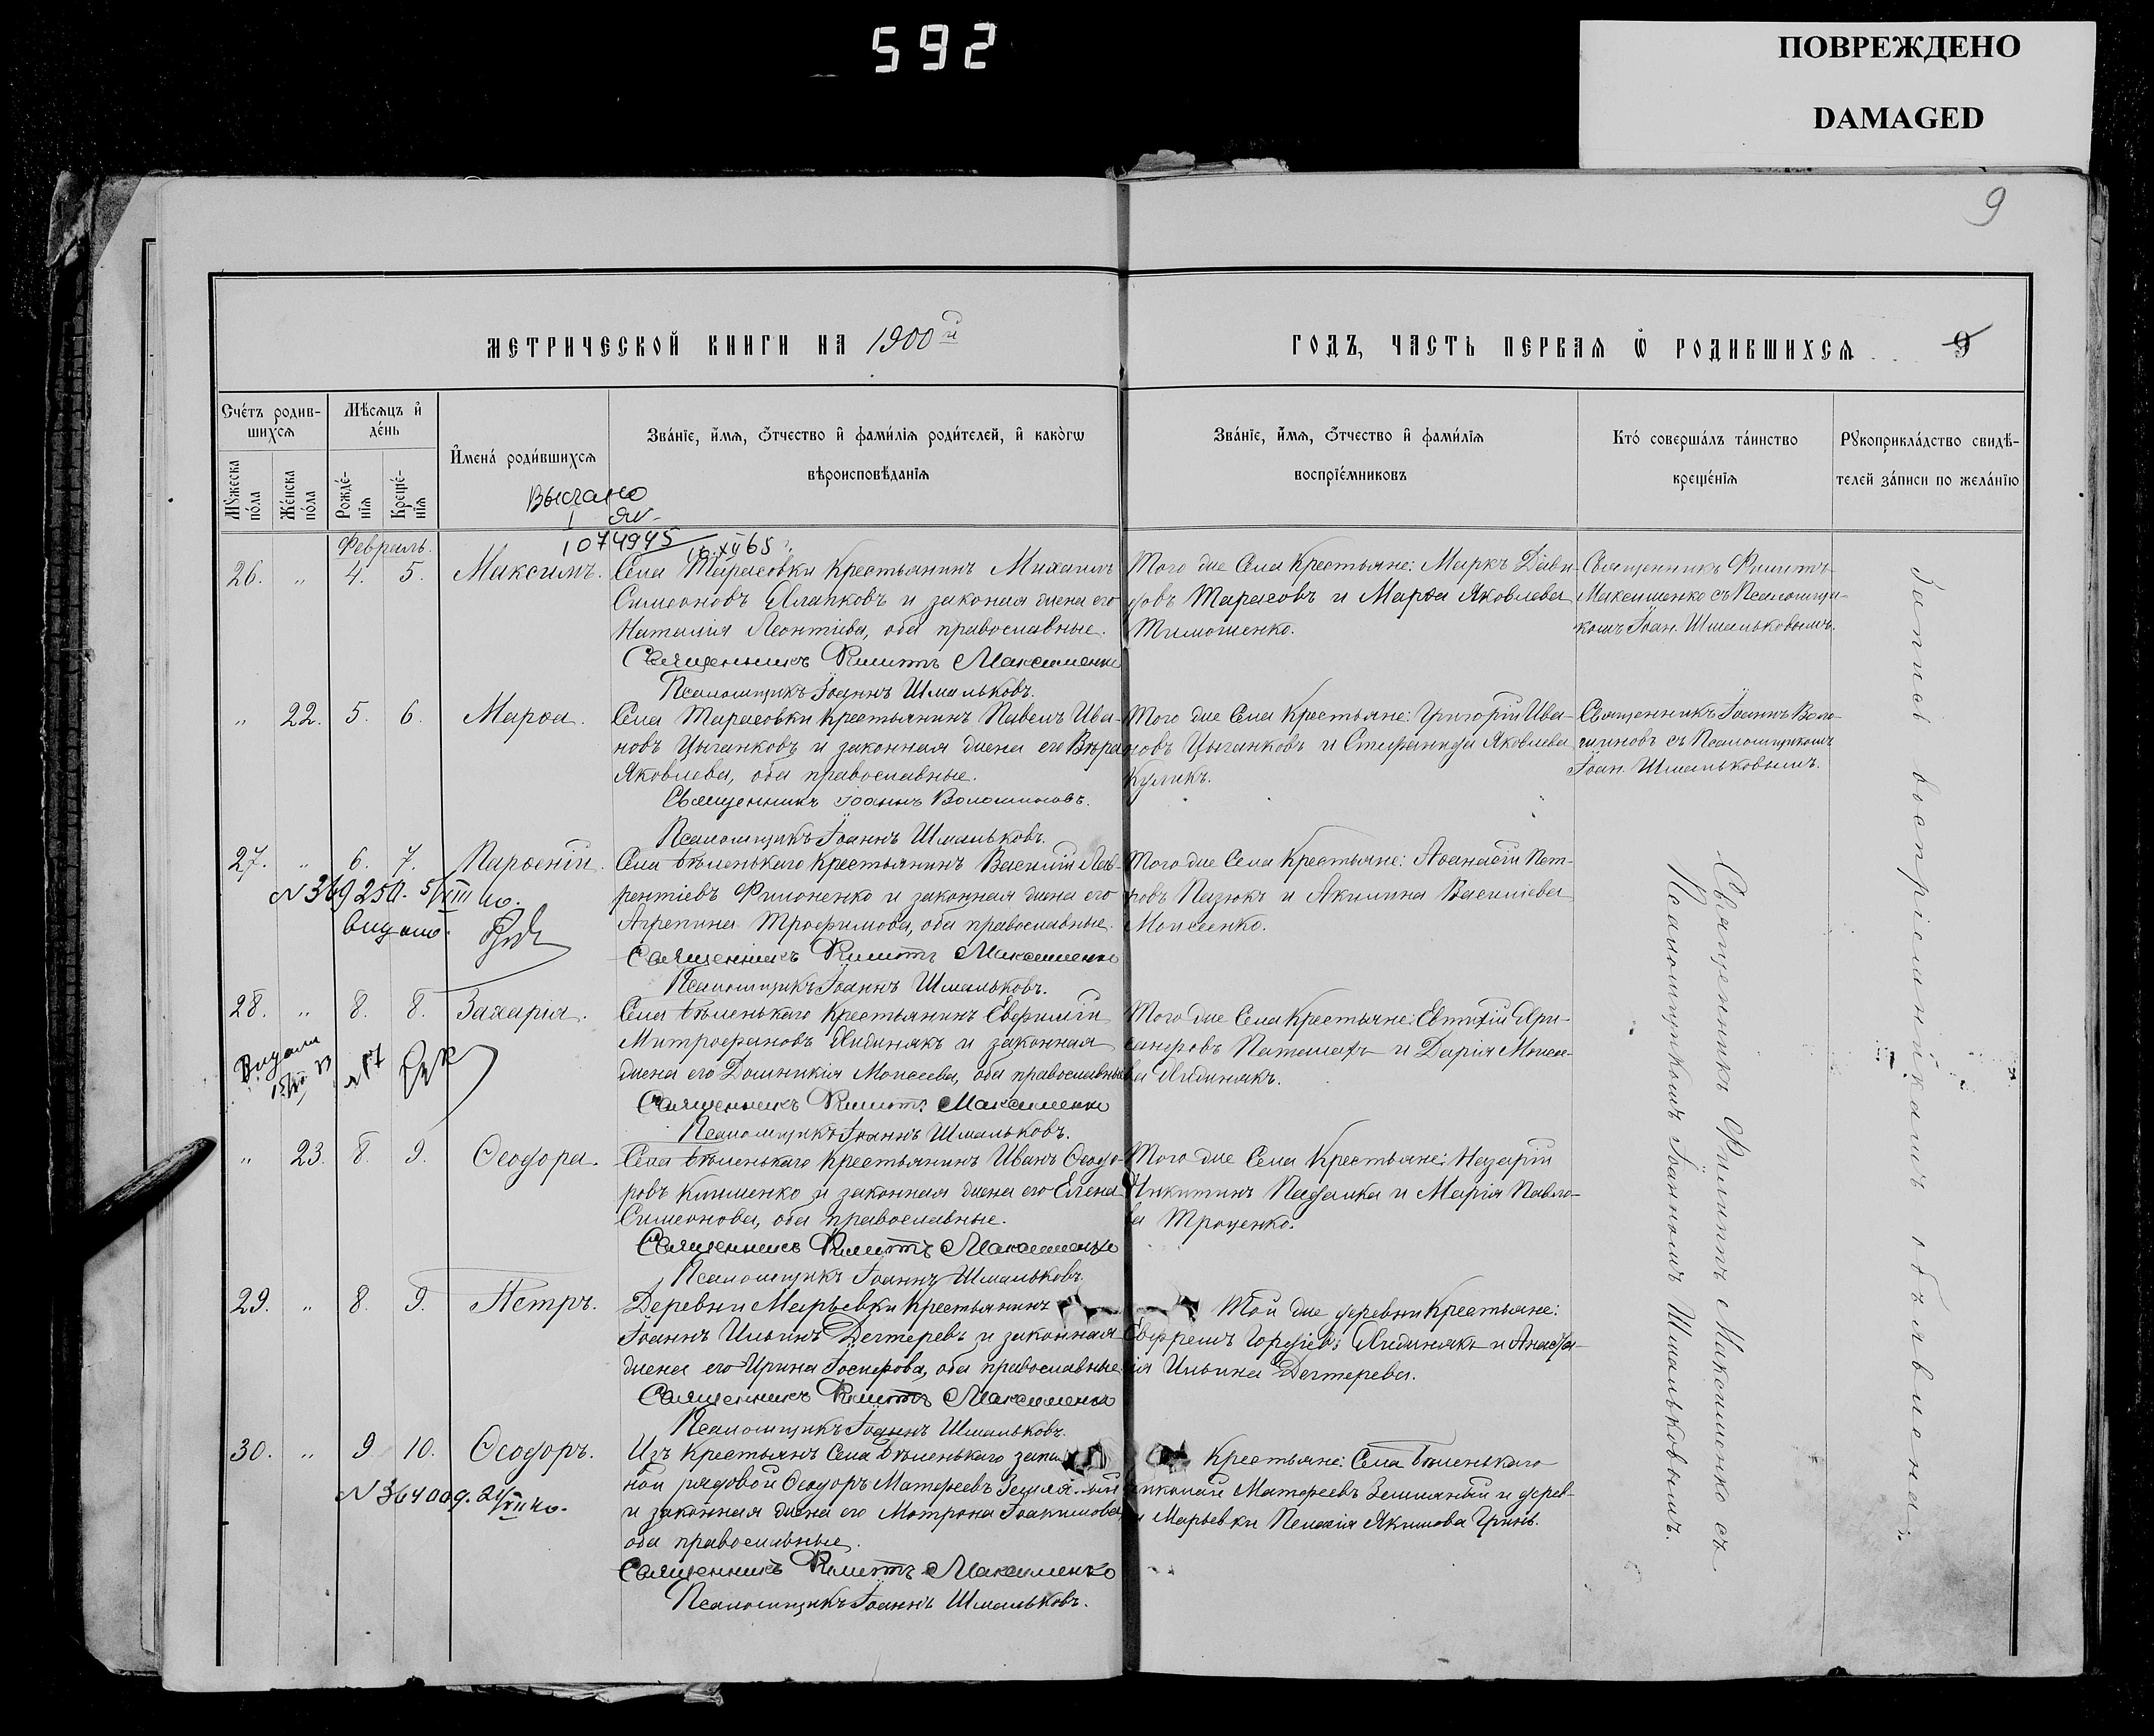 592
ПОВРЕЖДЕНО
DAMAGED
9
МЕТРИЧЕСКОЙ КНИГИ НА 1900й
ГОДЪ, ЧАСТЬ ПЕРВАЯ Ѡ РОДИВШИХСЯ 9
Счéтъ родив-
шихся
Мѣсяцъ и
дéнь
Мꙋжеска
пóла
Жéнска
пóла
Рождé-
нія
Крещé-
нія
Именá роди́вшихся
Звáніе, и́мя, ѻ́тчество и фами́лія роди́телей, и какóгѡ
вѣроисповѣ́данія
Звáніе, и́мя, ѻ́тчество и фами́лія
воспріéмниковъ
Ктó совершáлъ тáинство
крещéнія
Рꙋкоприклáдство свидѣ́-
телей зáписи по желáнію
Февраль.
1074945
26. „ 4. 5. Максимъ.
Села Тарасовки Крестьянинъ Михаилъ
Симеоновъ и законая жена его
Наталія Леонтіева, оба православные.
Священникъ Филиппъ Максименко
Псаломщикъ Іоаннъ Шмальковъ.
Того же Села Крестьяне: Маркъ Дави-
довъ Тарасовъ и Марѳа Яковлева
Тимошенко.
Священникъ Филиппъ
Максименко съ Псаломщи-
комъ Іоан. Шмальковымъ.
„ 22. 5. 6. Марѳа.
Села Тарасовки Крестьянинъ Павелъ Ива-
новъ Цыганковъ и законная жена его Вѣра
Яковлева, оба православные.
Священникъ Іоаннъ Волошиновъ.
Псаломщикъ Іоаннъ Шмальковъ.
Того же Села Крестьяне: Григорій Ива-
новъ Цыганковъ и Стефанида Яковлева
Куликъ.
Священникъ Іоаннъ Воло-
шиновъ съ Псаломщикомъ
Іоан. Шмальковымъ.
27. „ 6. 7. Парѳеній.
N 369250
видано.
Села Бѣленькаго Крестьянинъ Василій Лав-
рентіевъ Филоненко и законная жена его
Агрепина Трофимова, оба православные.
Священникъ Филиппъ Максименко
Псаломщикъ Іоаннъ Шмальковъ.
Того же Села Крестьяне: Аѳанасій Пет-
ровъ Пазюкъ и Акилина Василіева
Моисеенко.
28. „ 8. 8. Захарія.
Видана
Села Бѣленькаго Крестьянинъ
Митрофановъ и законная
жена его Домникія Моисеева, оба православные
Священникъ Филиппъ Максименко
Псаломщикъ Іоаннъ Шмальковъ.
Того же Села Крестьяне: Евтихій
и Дарія Моисее-
ва
„ 23. 8. 9. Ѳеодора.
Села Бѣленькаго Крестьянинъ Иванъ Ѳеодо-
ровъ Клименко и законная жена его Елена
Симеонова, оба православные.
Священникъ Филиппъ Максименко
Псаломщикъ Іоаннъ Шмальковъ.
Того же Села Крестьяне: Назарій
Никитинъ Падалка и Марія Павло-
ва Троценко.
29. „ 8. 9. Петръ.
Деревни Марьевки Крестьянинъ
Іоаннъ Ильинъ Дегтеревъ и законная
жена его Ирина Іосифова, оба православные.
Священникъ Филиппъ Максименко
Псаломщикъ Іоаннъ Шмальковъ.
Той же деревни Крестьяне:
Ефремъ и
Ильина Дегтерева.
30. „ 9 10. Ѳеодоръ.
N 364009
Изъ Крестьянъ Села Бѣленькаго
ной рядовой Ѳеодоръ Матѳеевъ
и законная жена его Мотрона Іоакимова
оба православные.
Священникъ Филиппъ Максименко
Псаломщикъ Іоаннъ Шмальковъ.
Крестьяне: Села Бѣленькаго
Николай Матѳеевъ Земляный и дерев-
ни Марьевки Пелагія Якимова Гринь.
Священникъ Филиппъ Максименко съ
Псаломщикомъ Іоанномъ Шмальковымъ.
Запись воспріемникамъ объявлена: